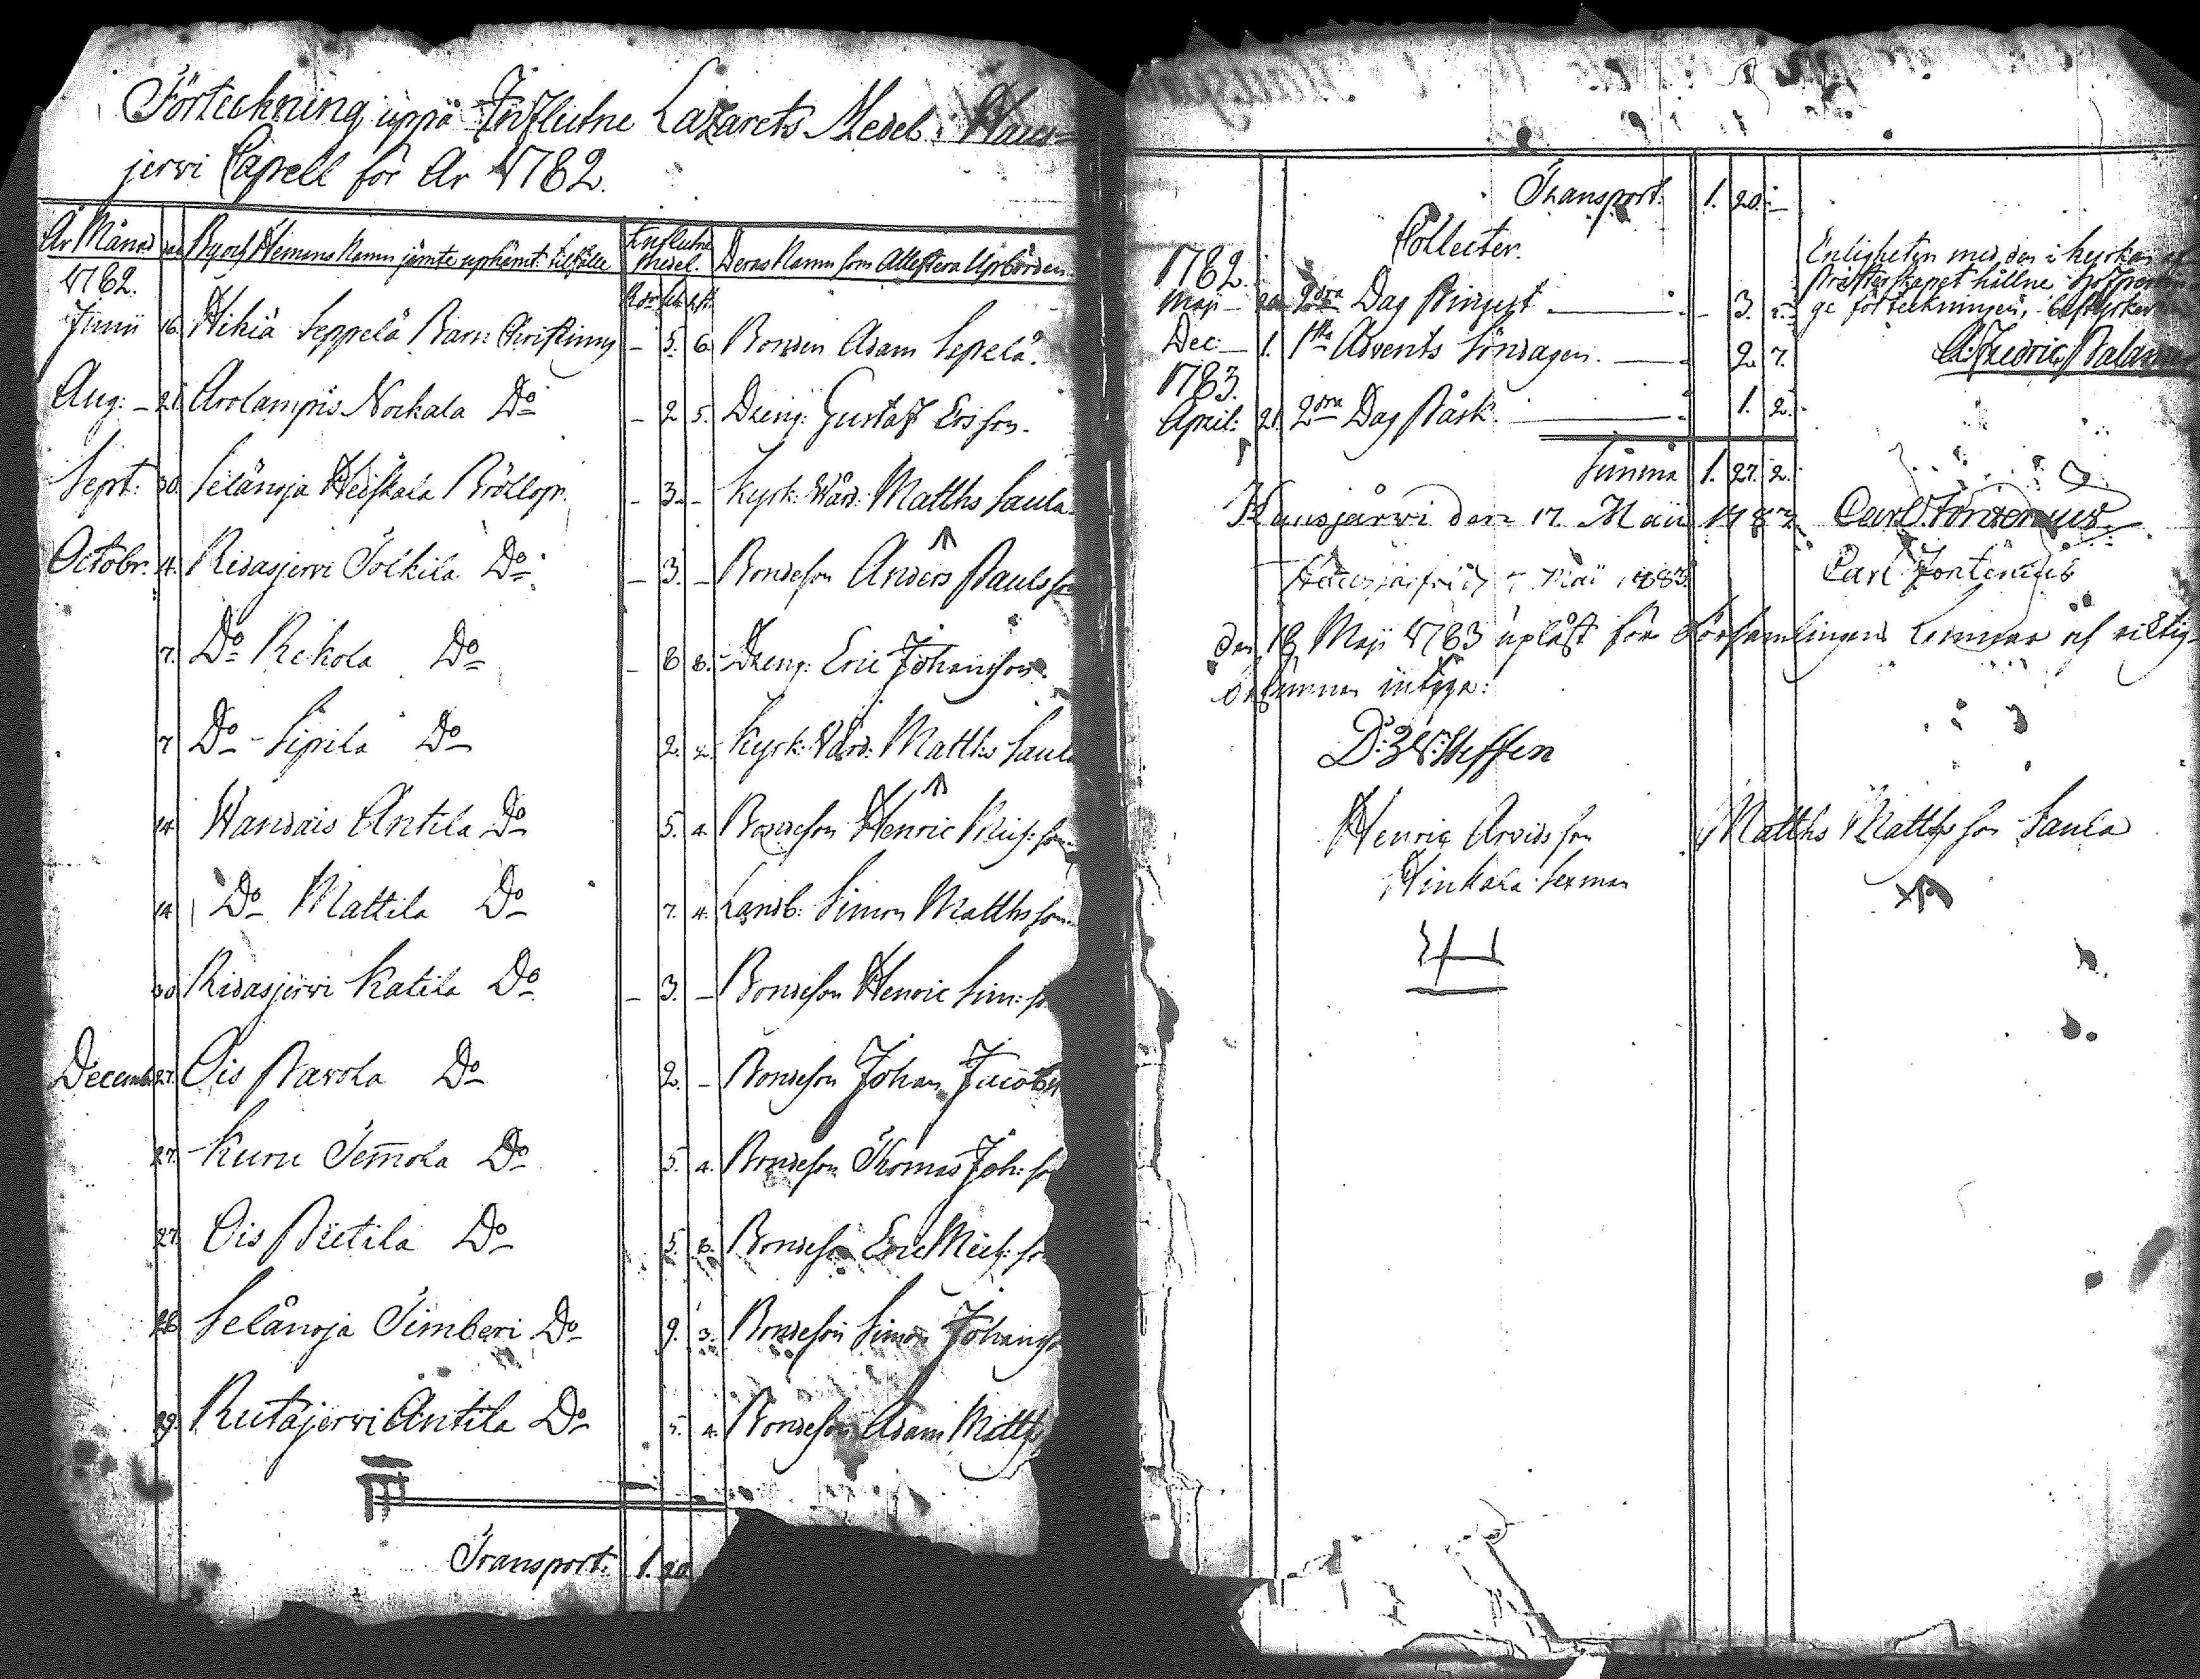 Förteckning uppå Influtne Lazarets Medel. Haus=
jerwi Capell för År 1782.
År Månad Influtne Medel. Deras Namn som Attestera Upbörden
1782.
Junii 16. Hikiä Seppelä Barn Christning – 5. 6. Bonden Adam Sepelä.
Aug: – 21. Arolampis Nockala Do – 2 5. Dreng: Gustaf Ersson.
Sept. 30 Selänoja Heiskala Bröllop. – 3. – Kyrk: Wärd: Matths Saula
Octobr. 4. Ridasjerwi Tolkila Do – 3. – Bondeson Anders Paulsson
7. Do Rekola Do – 8 8. Dreng: Eric Johansson.
7 Do – Sipila Do 2. 2. Kyrk: Wärd: Matths Saula
14 Wandais Antila Do 5. 4. Bondeson Henric Mich: son
14 Do Mattila Do 7. 4. Landb: Simon Matthsson
30 Ridasjerwi Katila Do – 3. – Bondeson Henric Sim: so
Decemb. 27. Ois Pavola Do 2. – Bondeson Johan Jacobs
27. Kuru Temola Do 5. 4. Bondeson Thomas Joh: so
27. Ois Pietila Do 5. 8. Bondeson Eric Mich: so
28 Selänoja Timberi Do 9. 3. Bondeson Simon Johansso
29. Rutajerwi Antila Do 5. 4. Bondeson Adam Matths
Transport. 1. 20
Transport. 1. 20. –
Collecter.
1782.
Maji – 2dra Dag Pingest – 3. 2.
Dec: – 1. 1sta Advents Söndagen. – 2. 7.
1783.
April: 21. 2dra Dag Påsk. – 1. 2.
Enligheten med den i kyrkan af
Presterskapet hållne
ge förteckningen,
A: Fredric Palander
Summa 1. 27. 2.
Hausjärwi den 17. Maii 1783 Carl Fontenius.
Carl Fontenius
den 18 Maji 1783 upläst för Församlingen lemnar af riktig-
D: Z W: Steffen
Henric Arvidsson
Hinkala Sexman
Matths Matthsson Saula